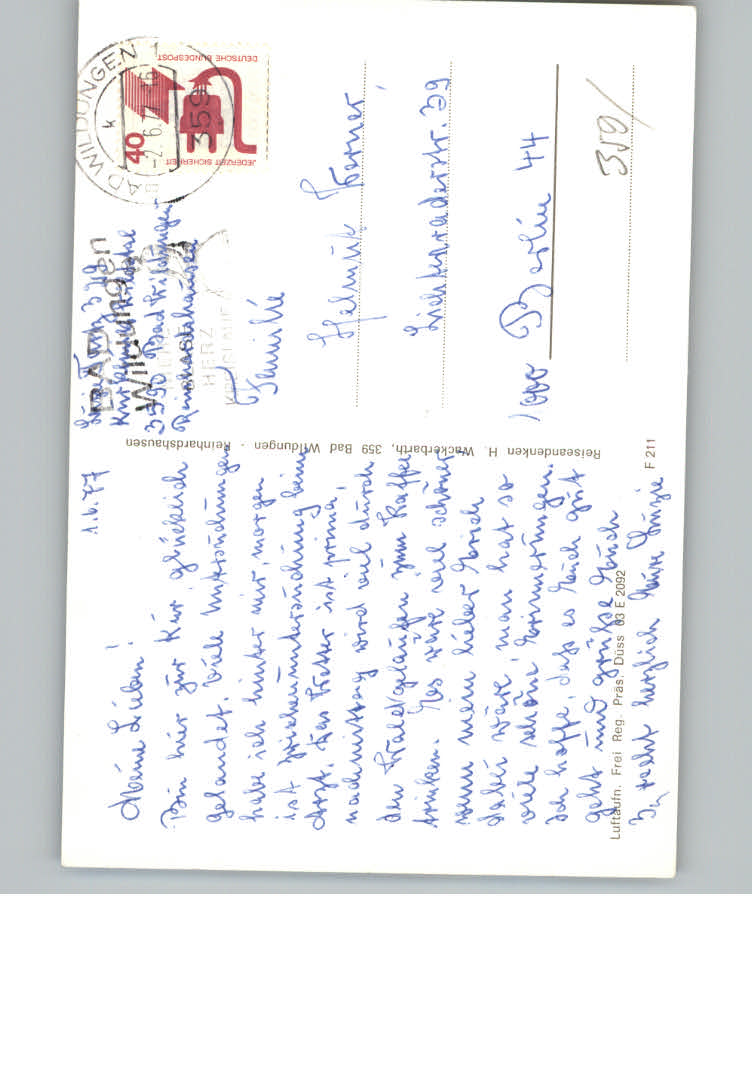 1.6.77
Meine Lieben!
Bin hier zur Kur glücklich
gelandet. Viele Untersuchungen
habe ich hinter mir, morgen
ist Zwischenuntersuchung beim
Arzt. Das Wetter ist prima,
nachmittag wird viel durch
den Wald gelaufen zum Kaffee
trinken. Es wäre viel schöner
wenn mein lieber Erich
dabei wäre, man hat so
viele schöne Erinnerungen.
Ich hoffe, daß es Euch gut
geht und grüße Euch
recht herzlich Eure
Luftaufn. Frei Reg. Präs. Düss 03 E 2092
F 211
Reiseandenken H. Wackerbarth, 359 Bad Wildungen - Reinhardshausen
3590 Bad Wildungen
Reinhardshausen
BAD
Wildungen
HERZ
BAD WILDUNGEN 1
-2.6.77-16
359
k
DEUTSCHE BUNDESPOST
40
JEDERZEIT SICHERHEIT
Familie
Helmut Werner
Lichtenraderstr. 39
1000 Berlin 44
359/